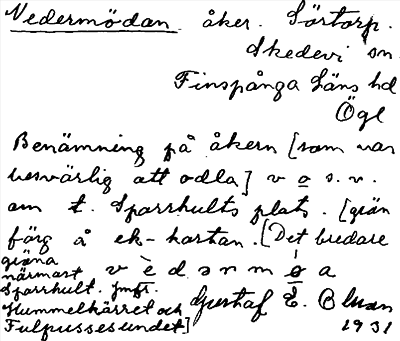 Vedermödan åker. Sörtorp.
Skedevi sn
Finspånga Läns hd
Ögl
Benämning på åkern [som var
besvärlig att odla] v o s.v.
om t. Sparrhults plats. [grön
färg å ek-kartan. [Det bredare
gröna
närmast
Sparrhult. Jmfr.
Hummelkärret och
Fulpussesundet]
v è d ə r m ø a
Gustaf E. Bluan
1931